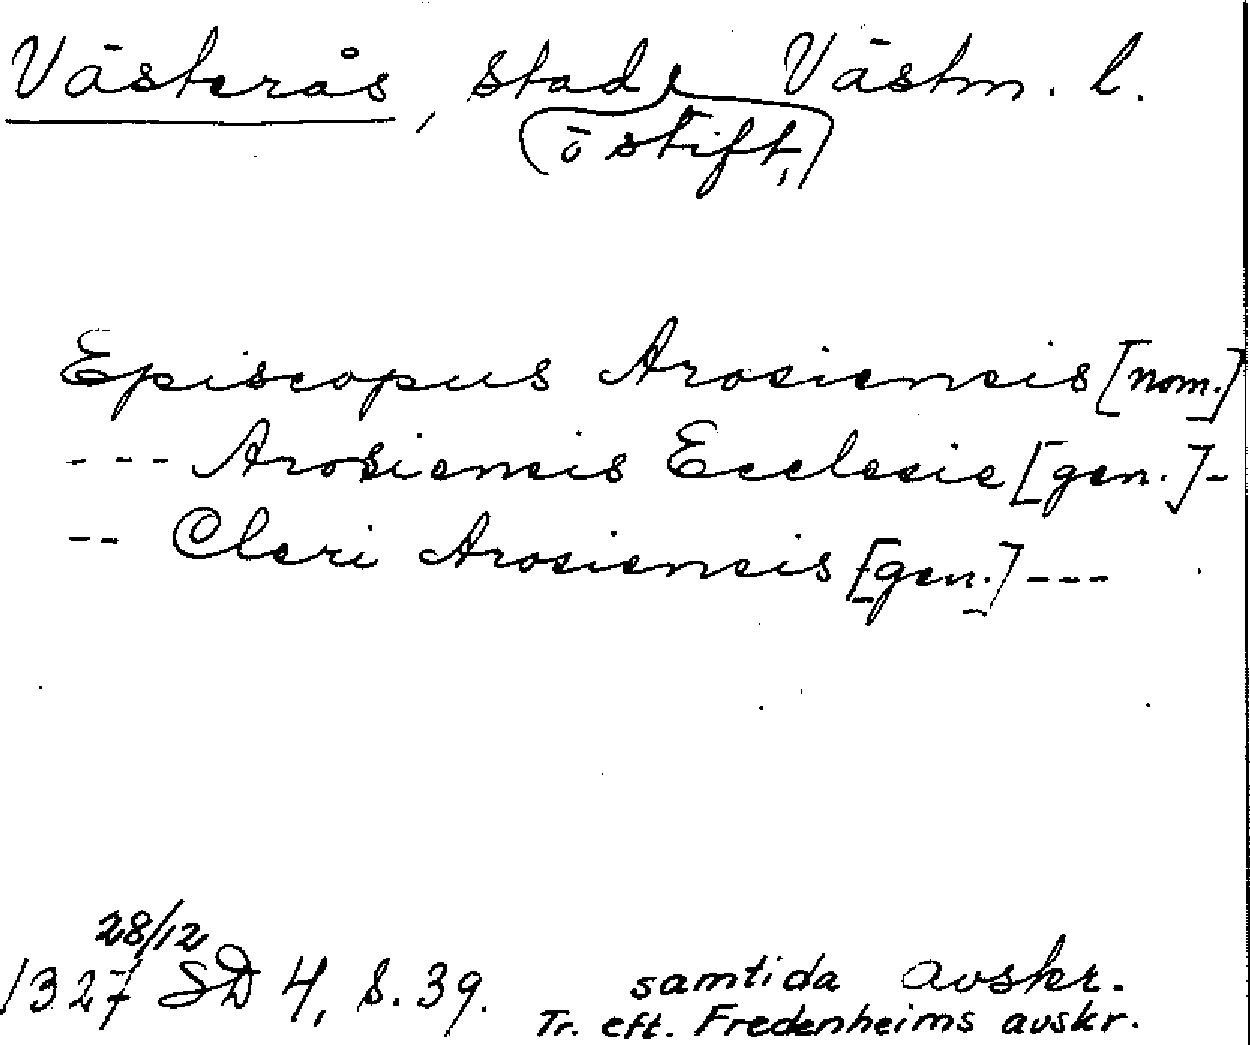 Västerås, stad Västm. l.
ö stift,
Episcopus Arosiensis [nom.]
--- Arosiensis Ecclesie [gen.]-
-- Cleri Arosiensis [gen.]---
28/12
1327 SD 4, s. 39. samtida avskr.
Tr. eft. Fredenheims avskr.